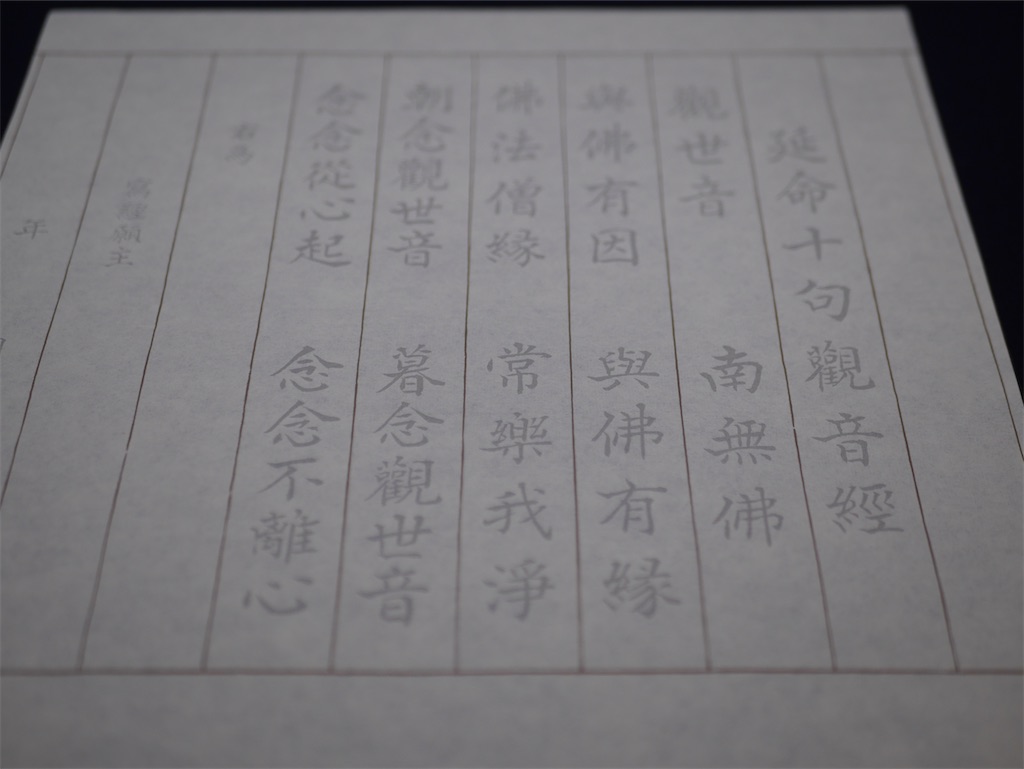 延命十句觀音經
觀世音　南無佛
與佛有因　與佛有緣
佛法僧緣　常樂我淨
朝念觀世音　暮念觀世音
念念從心起　念念不離心
右為
寫經願主
年